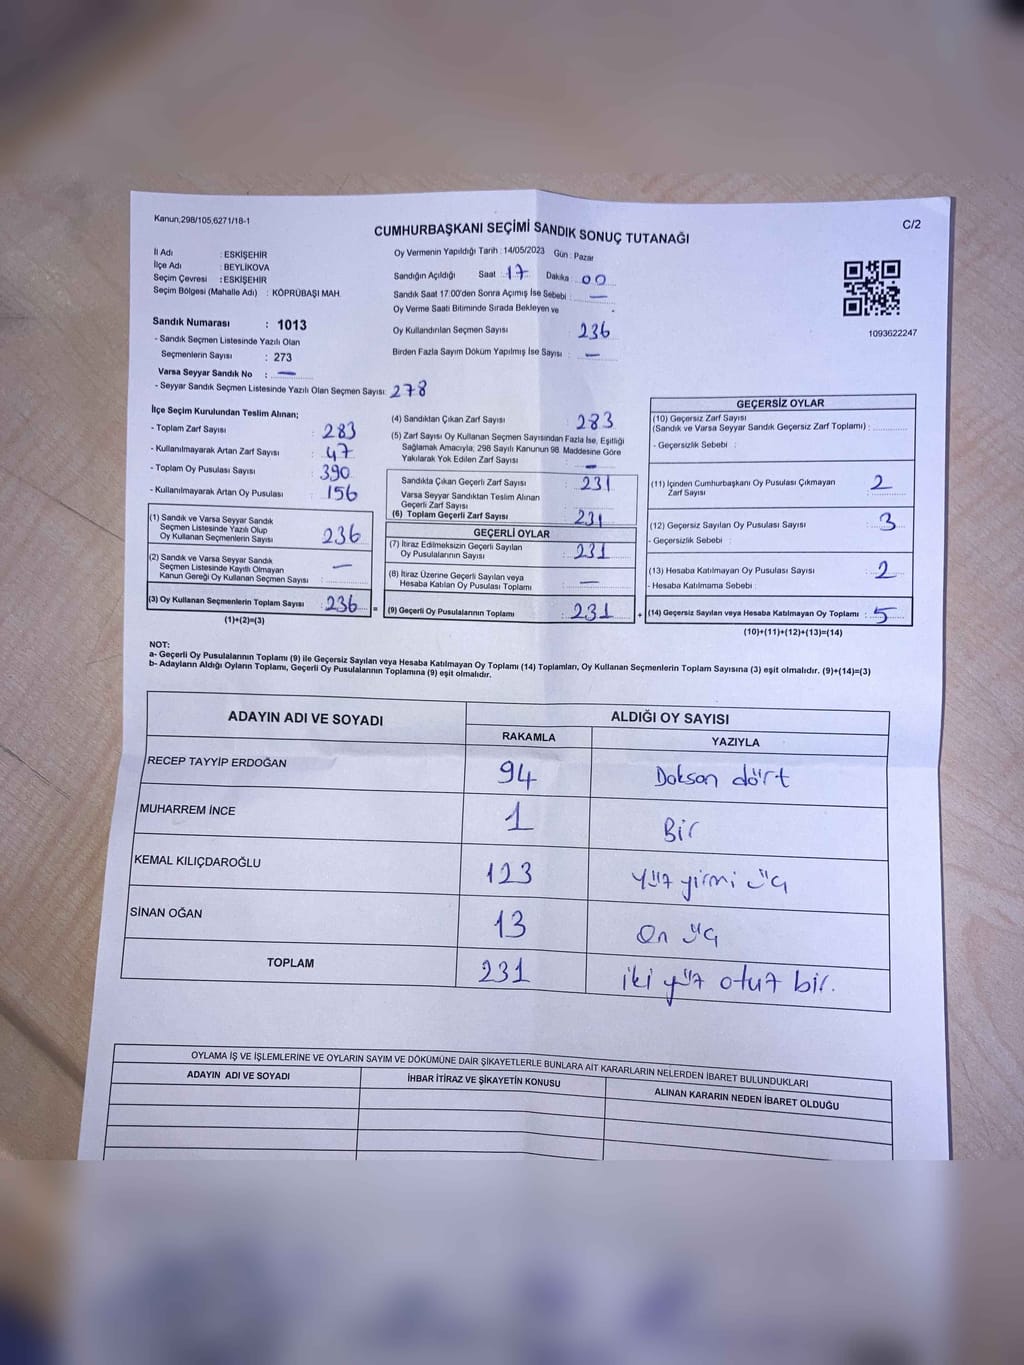 Kanun,298/105,6271/18-1
C/2
CUMHURBAŞKANI SEÇİMİ SANDIK SONUÇ TUTANAĞI
İl Adı : ESKİŞEHİR
İlçe Adı : BEYLİKOVA
Seçim Çevresi : ESKİŞEHİR
Seçim Bölgesi (Mahalle Adı) : KÖPRÜBAŞI MAH.
Oy Vermenin Yapıldığı Tarih : 14/05/2023 Gün : Pazar
Sandığın Açıldığı Saat : 17 Dakika : 00
Sandık Saat 17.00'den Sonra Açımış İse Sebebi : —
Oy Verme Saati Bitiminde Sırada Bekleyen ve
Oy Kullandırılan Seçmen Sayısı : 236
Birden Fazla Sayım Döküm Yapılmış İse Sayısı : —
1093622247
Sandık Numarası : 1013
- Sandık Seçmen Listesinde Yazılı Olan
Seçmenlerin Sayısı : 273
Varsa Seyyar Sandık No : —
- Seyyar Sandık Seçmen Listesinde Yazılı Olan Seçmen Sayısı: 278
İlçe Seçim Kurulundan Teslim Alınan;
- Toplam Zarf Sayısı : 283
- Kullanılmayarak Artan Zarf Sayısı : 47
- Toplam Oy Pusulası Sayısı : 390
- Kullanılmayarak Artan Oy Pusulası : 156
(1) Sandık ve Varsa Seyyar Sandık
Seçmen Listesinde Yazılı Olup
Oy Kullanan Seçmenlerin Sayısı : 236
(2) Sandık ve Varsa Seyyar Sandık
Seçmen Listesinde Kayıtlı Olmayan
Kanun Gereği Oy Kullanan Seçmen Sayısı : —
(3) Oy Kullanan Seçmenlerin Toplam Sayısı : 236 =
(1)+(2)=(3)
(4) Sandıktan Çıkan Zarf Sayısı : 283
(5) Zarf Sayısı Oy Kullanan Seçmen Sayısından Fazla İse, Eşitliği
Sağlamak Amacıyla, 298 Sayılı Kanunun 98. Maddesine Göre
Yakılarak Yok Edilen Zarf Sayısı : —
Sandıkta Çıkan Geçerli Zarf Sayısı : 231
Varsa Seyyar Sandıktan Teslim Alınan
Geçerli Zarf Sayısı :
(6) Toplam Geçerli Zarf Sayısı : 231
GEÇERLİ OYLAR
(7) İtiraz Edilmeksizin Geçerli Sayılan
Oy Pusulalarının Sayısı : 231
(8) İtiraz Üzerine Geçerli Sayılan veya
Hesaba Katılan Oy Pusulası Toplamı : —
(9) Geçerli Oy Pusulalarının Toplamı : 231 +
GEÇERSİZ OYLAR
(10) Geçersiz Zarf Sayısı
(Sandık ve Varsa Seyyar Sandık Geçersiz Zarf Toplamı) :
- Geçersizlik Sebebi :
(11) İçinden Cumhurbaşkanı Oy Pusulası Çıkmayan
Zarf Sayısı : 2
(12) Geçersiz Sayılan Oy Pusulası Sayısı : 3
- Geçersizlik Sebebi :
(13) Hesaba Katılmayan Oy Pusulası Sayısı : 2
- Hesaba Katılmama Sebebi :
(14) Geçersiz Sayılan veya Hesaba Katılmayan Oy Toplamı : 5
(10)+(11)+(12)+(13)=(14)
NOT:
a- Geçerli Oy Pusulalarının Toplamı (9) ile Geçersiz Sayılan veya Hesaba Katılmayan Oy Toplamı (14) Toplamları, Oy Kullanan Seçmenlerin Toplam Sayısına (3) eşit olmalıdır. (9)+(14)=(3)
b- Adayların Aldığı Oyların Toplamı, Geçerli Oy Pusulalarının Toplamına (9) eşit olmalıdır.
ADAYIN ADI VE SOYADI ALDIĞI OY SAYISI
RAKAMLA YAZIYLA
RECEP TAYYİP ERDOĞAN 94 Doksan dört
MUHARREM İNCE 1 Bir
KEMAL KILIÇDAROĞLU 123 yüz yirmi üç
SİNAN OĞAN 13 On üç
TOPLAM 231 iki yüz otuz bir.
OYLAMA İŞ VE İŞLEMLERİNE VE OYLARIN SAYIM VE DÖKÜMÜNE DAİR ŞİKAYETLERLE BUNLARA AİT KARARLARIN NELERDEN İBARET BULUNDUKLARI
ADAYIN ADI VE SOYADI İHBAR İTİRAZ VE ŞİKAYETİN KONUSU ALINAN KARARIN NEDEN İBARET OLDUĞU